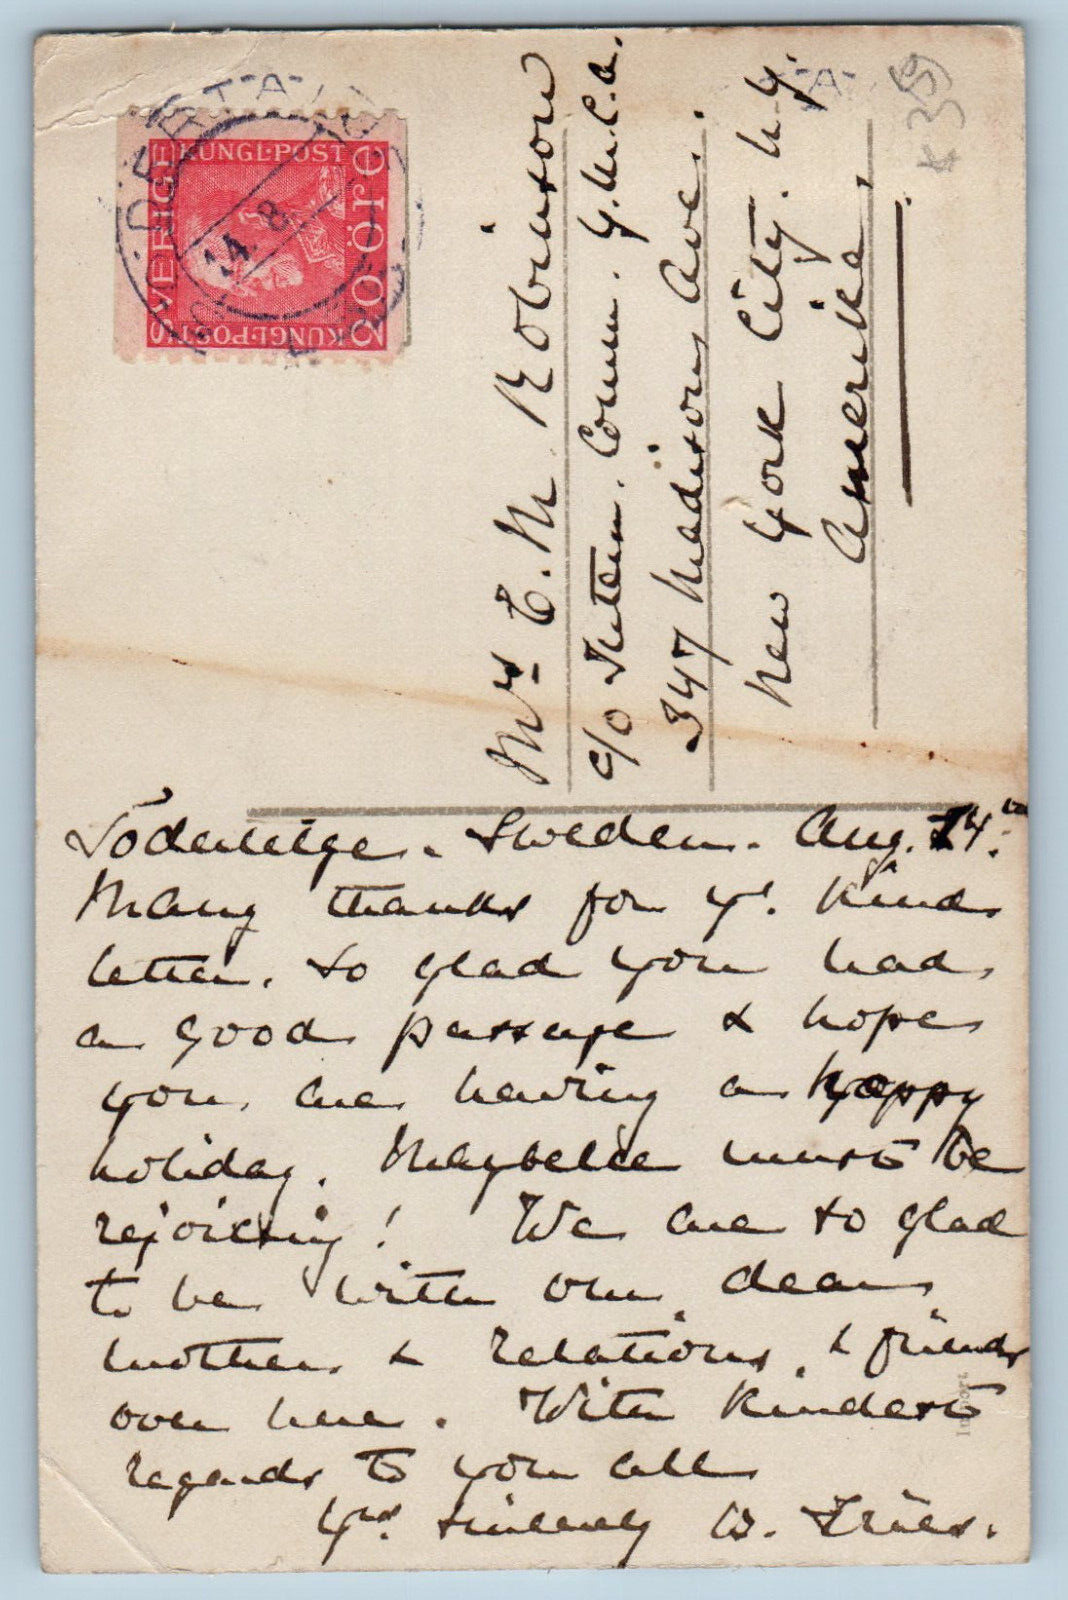 SVERIGE
KUNGL·POST
KUNGL·POST
20 öre
14. 8
Mrs E. M. Robinson
c/o Intern. Comm. Y.M.C.A.
347 Madison Ave.
New York City. N.Y.
Amerika.
359
Södertelge. Sweden. Aug. 14.
Many thanks for yr. kind
letter. So glad you had
a good passage & hope
you are having a happy
holiday. Maybelle must be
rejoicing! We are so glad
to be with our dear
mother & relations, & friends
over here. With kindest
regards to you all
Yrs. sincerely B. Fries.
Import